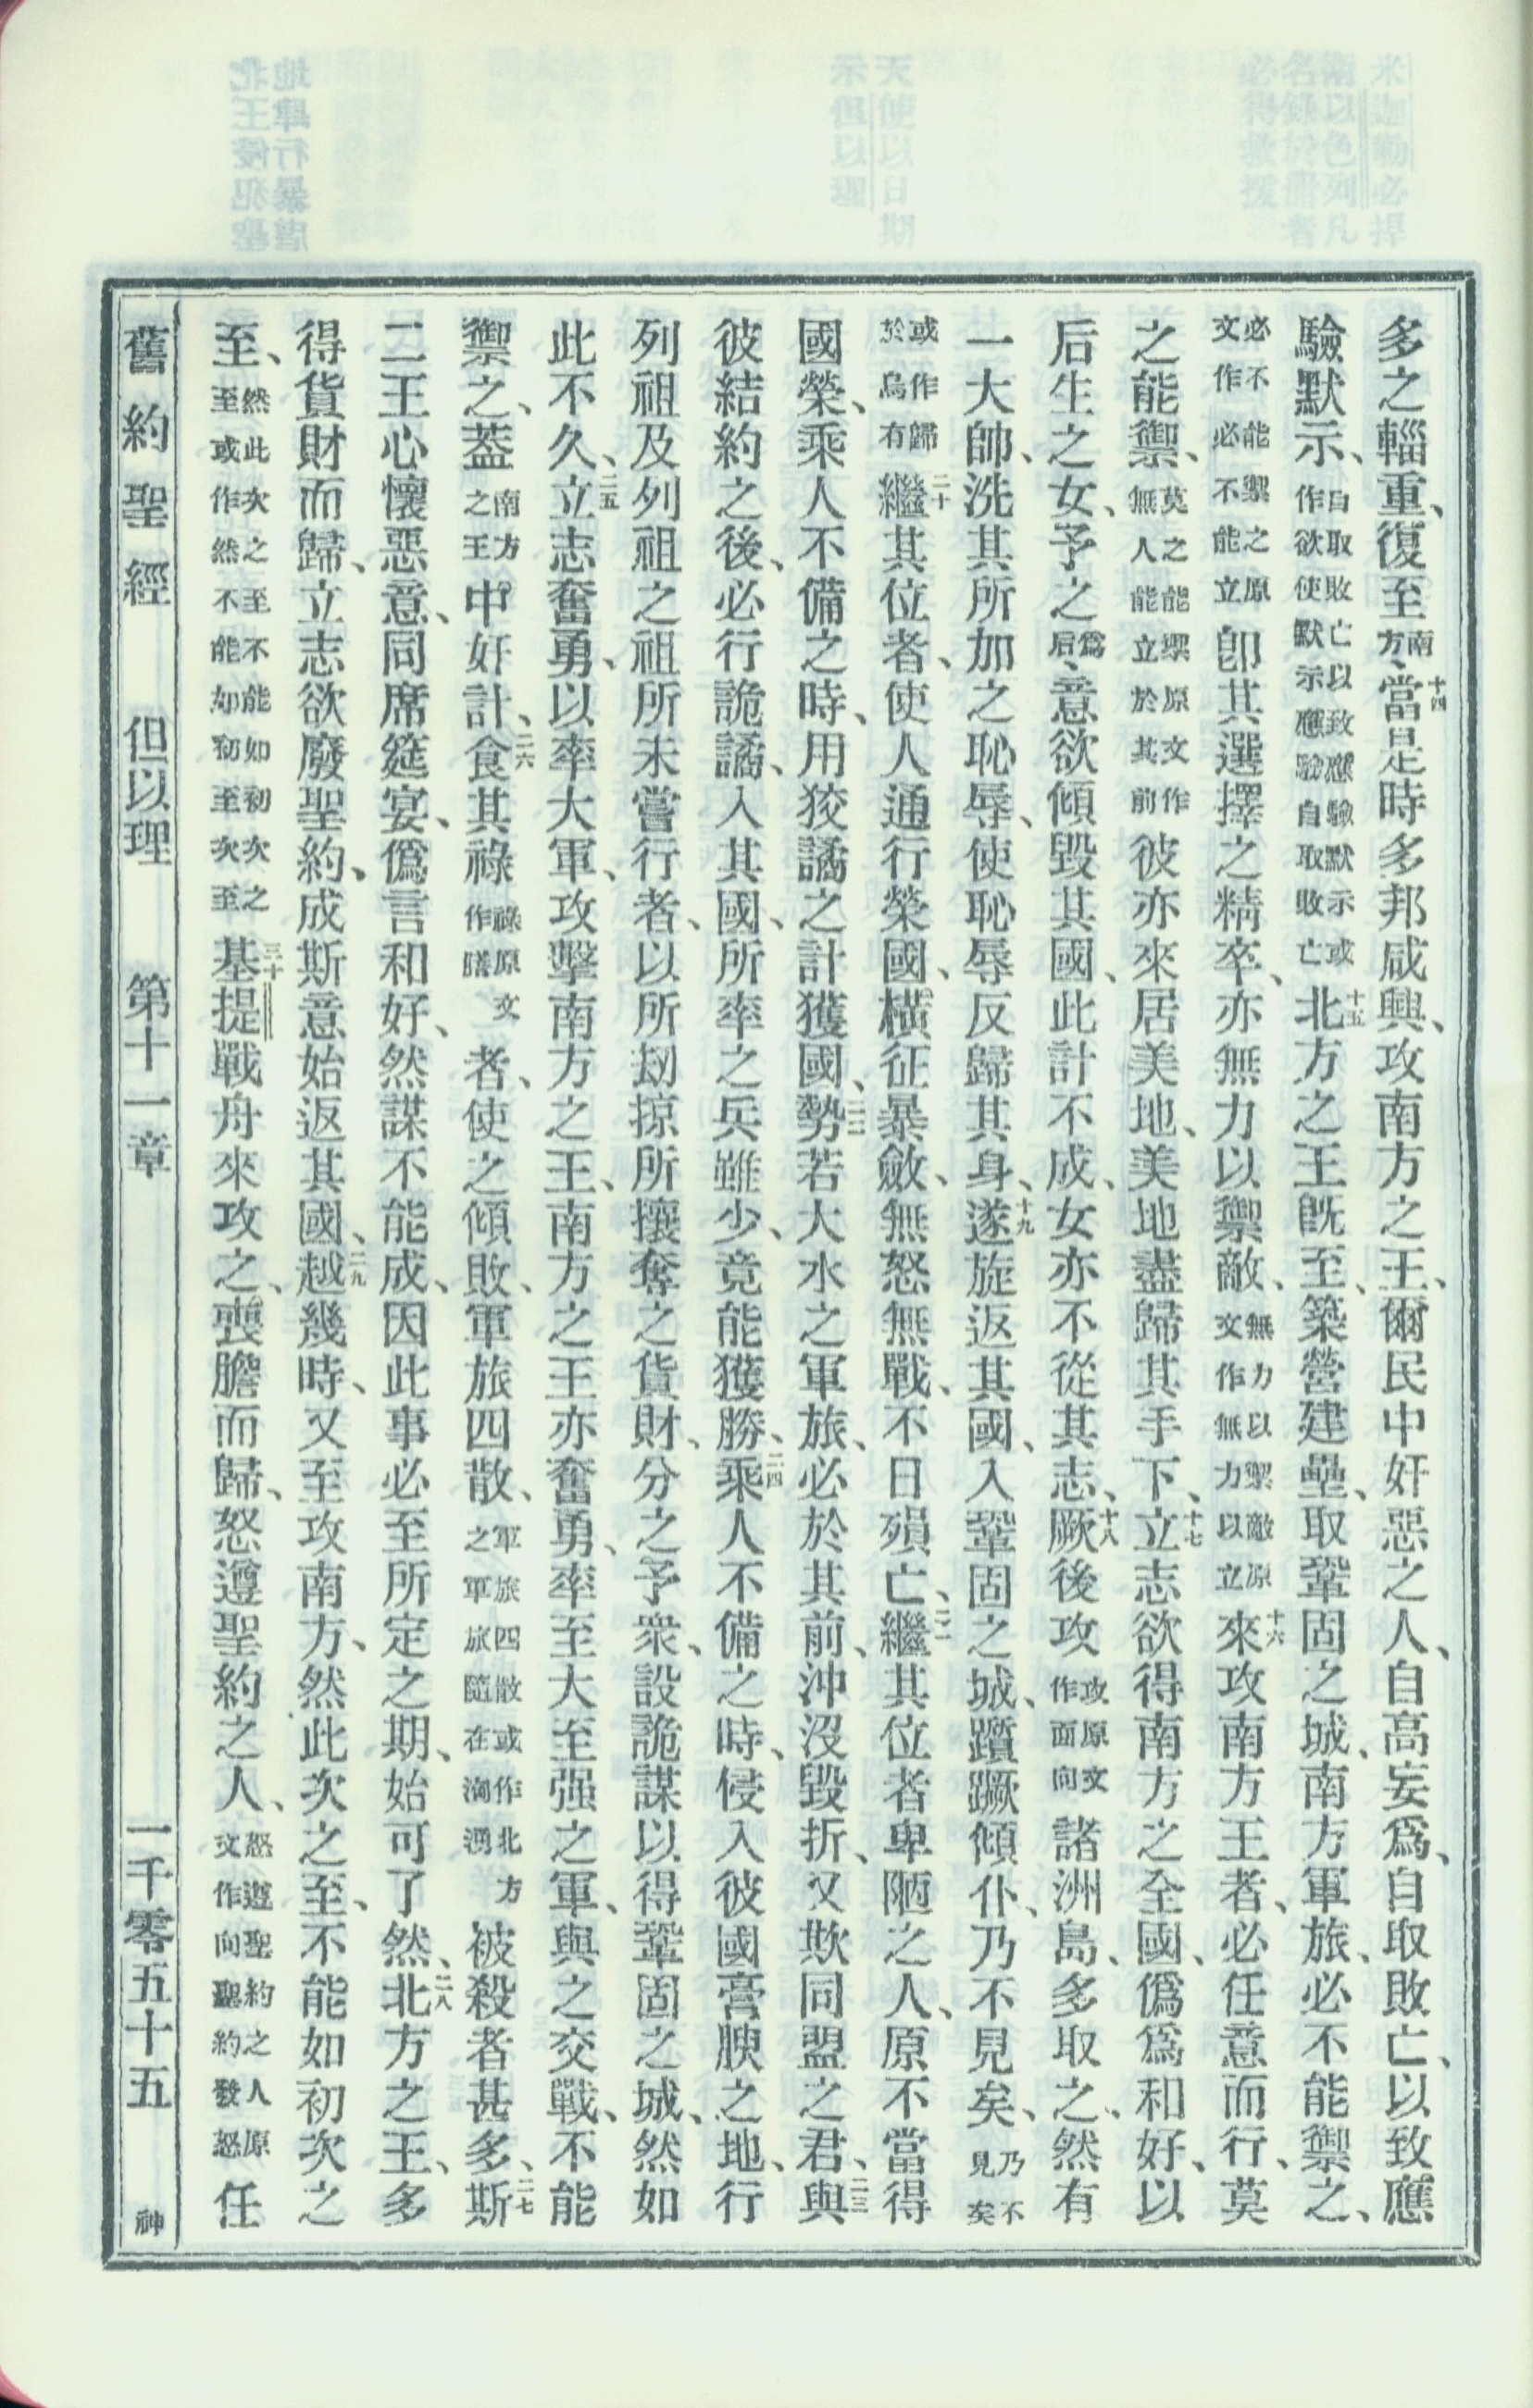 多之輜重、復至南方、十四當是時多邦咸興、攻南方之王、爾民中奸惡之人、自高妄爲、自取敗亡、以致應
驗默示、自取敗亡以致應驗默示或作欲使默示應驗自取敗亡十五北方之王旣至、築營建壘、取鞏固之城、南方軍旅、必不能禦之、
必不能禦之原文作必不能立卽其選擇之精卒、亦無力以禦敵、無力以禦敵原文作無力以立十六來攻南方王者、必任意而行、莫
之能禦、莫之能禦原文作無人能立於其前彼亦來居美地、美地盡歸其手下、十七立志欲得南方之全國、僞爲和好、以
后生之女、予之爲后、意欲傾毀其國、此計不成、女亦不從其志、十八厥後攻攻原文作面向諸洲島、多取之、然有
一大帥、洗其所加之恥辱、使恥辱反歸其身、十九遂旋返其國、入鞏固之城、躓蹶傾仆、乃不見矣、乃不見矣
或作歸於烏有二十繼其位者、使人通行榮國、橫征暴斂、無怒無戰、不日殞亡、二一繼其位者卑陋之人、原不當得
國榮、乘人不備之時、用狡譎之計獲國、二二勢若大水之軍旅、必於其前、沖沒毀折、又欺同盟之君、二三與
彼結約之後、必行詭譎、入其國、所率之兵雖少、竟能獲勝、二四乘人不備之時、侵入彼國膏腴之地、行
列祖及列祖之祖所未嘗行者、以所刼掠所攘奪之貨財、分之予衆、設詭謀以得鞏固之城、然如
此不久、二五立志奮勇、以率大軍、攻擊南方之王、南方之王亦奮勇、率至大至强之軍、與之交戰、不能
禦之、蓋南方之王中奸計、二六食其祿祿原文作膳者、使之傾敗、軍旅四散、軍旅四散或作北方之軍旅隨在洶湧被殺者甚多、二七斯
二王心懷惡意、同席筵宴、僞言和好、然謀不能成、因此事必至所定之期、始可了然、二八北方之王、多
得貨財而歸、立志欲廢聖約、成斯意始返其國、二九越幾時、又至攻南方、然此次之至、不能如初次之
至、然此次之至不能如初次之至或作然不能如初至次至三十基提戰舟來攻之、喪膽而歸、怒遵聖約之人、怒遵聖約之人原文作向聖約發怒任
舊約聖經 但以理 第十一章 一千零五十五 神